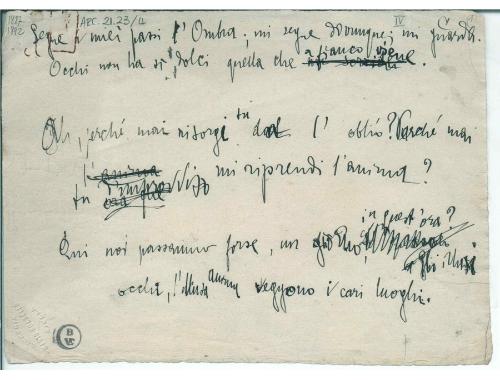 1887
1892
ARC. 21.23/4
IV
Segue i miei passi l'Ombra; mi segue dovunque; mi guarda.
Occhi non ha sì dolci quella che a fianco viene
Oh, perché mai risorgi tu dal l'oblìo? Perché mai
l'anima
tu mi riprendi l'anima?
in quest'ora?
Qui noi passammo forse, un
occhi, l'illusa anima veggono i cari luoghi.